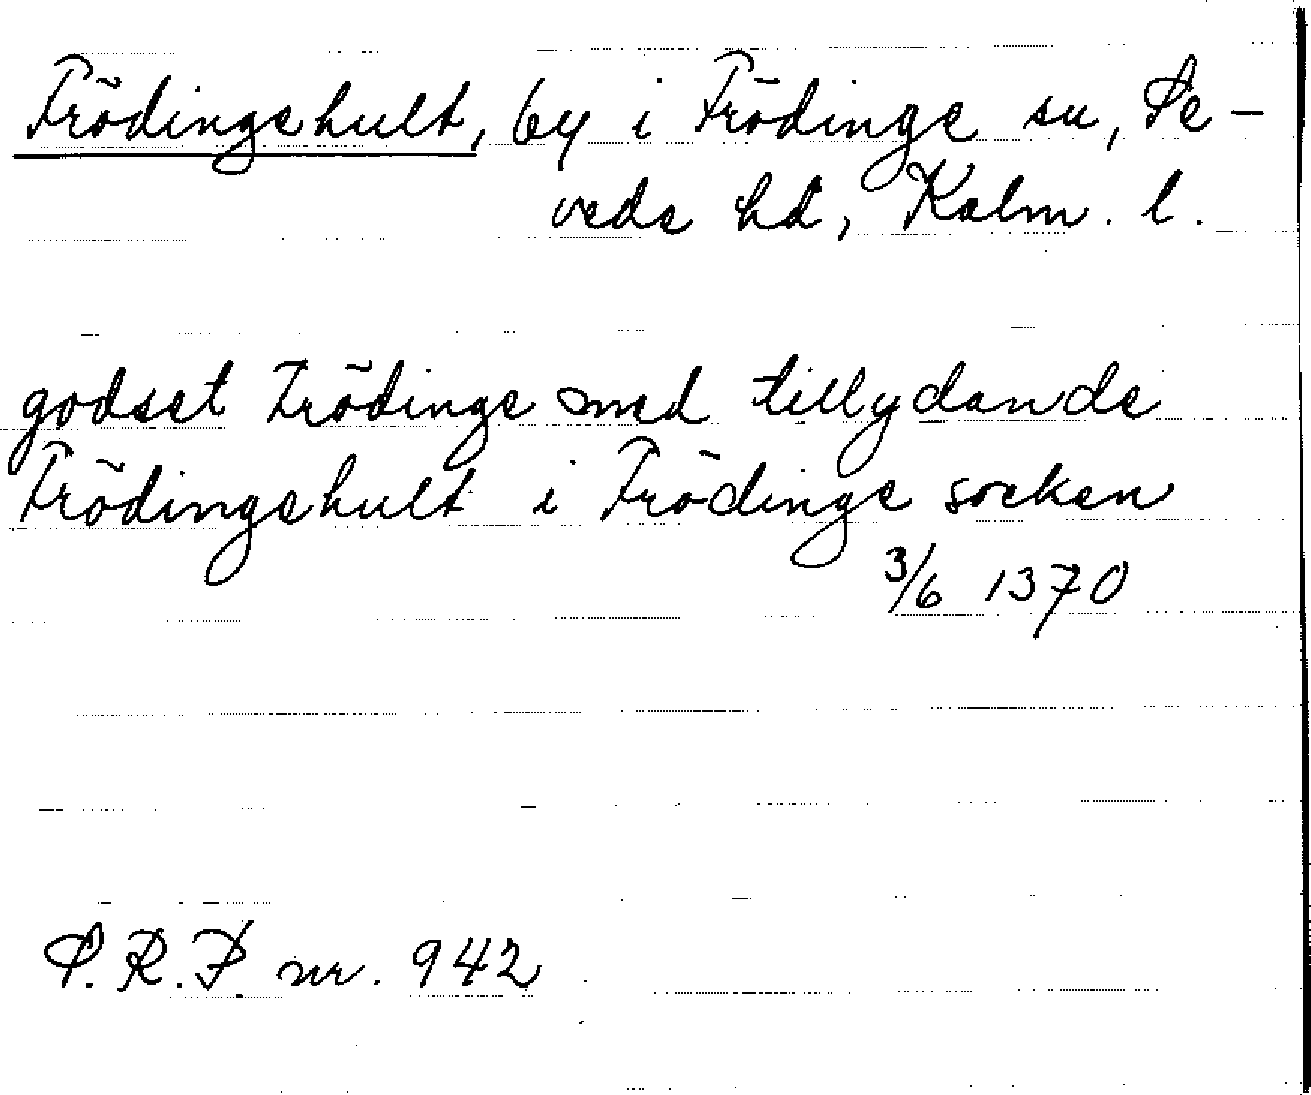 Frödingehult, by i Frödinge sn, Se-
vede hd, Kalm. l.
godset Frödinge med tillydande
Frödingehult i Frödinge socken
3/6 1370
S.R.P. nr. 942